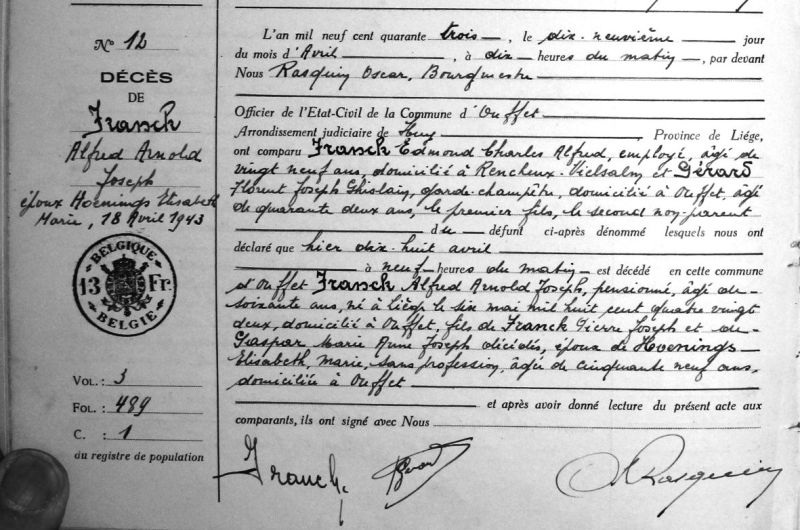 N° 12
DÉCÈS
DE
Franck
Alfred Arnold
Joseph
époux Hoenings Elisabeth
Marie, 18 Avril 1943
BELGIQUE
13 Fr.
BELGIE
VOL. : 3
FOL. : 489
C. : 1
du registre de population
L'an mil neuf cent quarante trois, le dix-neuvième jour
du mois d'Avril, à dix heures du matin, par devant
Nous Rasquin Oscar, Bourgmestre
Officier de l'Etat-Civil de la Commune d'Ouffet
Arrondissement judiciaire de Huy, Province de Liége,
ont comparu Franck Edmond Charles Alfred, employé, âgé de
vingt neuf ans, domicilié à Rencheux-Vielsalm et Dérard
Florent Joseph Ghislain, garde-champêtre, domicilié à Ouffet, âgé
de quarante deux ans, le premier fils, le second non-parent
du défunt ci-après dénommé lesquels nous ont
déclaré que hier dix-huit avril
à neuf heures du matin est décédé en cette commune
d'Ouffet Franck Alfred Arnold Joseph, pensionné, âgé de
soixante ans, né à Liège le six mai mil huit cent quatre vingt
deux, domicilié à Ouffet, fils de Franck Pierre Joseph et de
Gaspar Marie Anne Joseph décédés, époux de Hoenings
Elisabeth, Marie, sans profession, âgée de cinquante neuf ans,
domiciliée à Ouffet
et après avoir donné lecture du présent acte aux
comparants, ils ont signé avec Nous
Franck
Rasquin